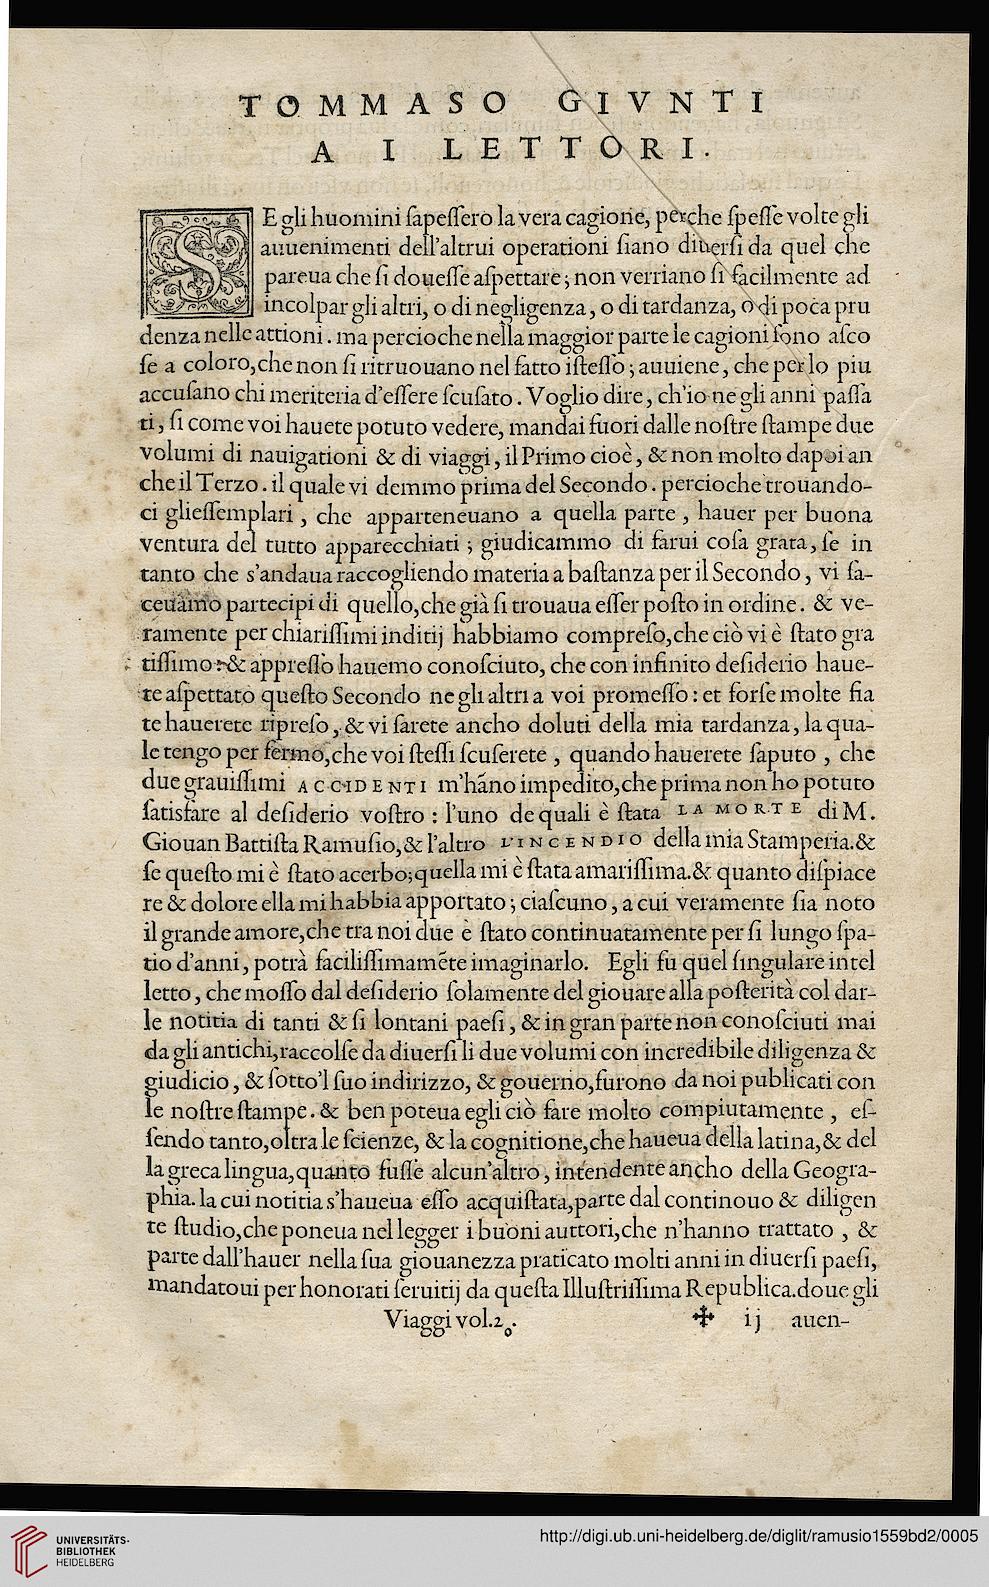 TOMMASO GIVNTI
A I LETTORI.
SE gli huomini ſapeſſero la vera cagione, perche ſpeſſe volte gli
auuenimenti dell'altrui operationi ſiano diuerſi da quel che
pareua che ſi doueſſe aſpettare; non verriano ſi facilmente ad
incolpar gli altri, o di negligenza, o di tardanza, o di poca pru
denza nelle attioni. ma percioche nella maggior parte le cagioni ſono aſco
ſe a coloro, che non ſi ritruouano nel fatto iſteſſo; auuiene, che per lo piu
accuſano chi meriteria d'eſſere ſcuſato. Voglio dire, ch'io ne gli anni paſſa
ti, ſi come voi hauete potuto vedere, mandai fuori dalle noſtre ſtampe due
volumi di nauigationi & di viaggi, il Primo cioè, & non molto dapoi an
che il Terzo. il quale vi demmo prima del Secondo. percioche trouando-
ci glieſſemplari, che apparteneuano a quella parte, hauer per buona
ventura del tutto apparecchiati; giudicammo di farui coſa grata, ſe in
tanto che s'andaua raccogliendo materia a baſtanza per il Secondo, vi fa-
ceuamo partecipi di quello, che già ſi trouaua eſſer poſto in ordine. & ve-
ramente per chiariſſimi inditij habbiamo compreſo, che ciò vi è ſtato gra
tiſſimo: & appreſſo hauemo conoſciuto, che con infinito deſiderio haue-
te aſpettato queſto Secondo ne gli altri a voi promeſſo: et forſe molte fia
te hauerete ripreſo, & vi ſarete ancho doluti della mia tardanza, la qua-
le tengo per fermo, che voi ſteſſi ſcuſerete, quando hauerete ſaputo, che
due grauiſſimi ACCIDENTI m'hãno impedito, che prima non ho potuto
ſatisfare al deſiderio voſtro: l'uno de quali è ſtata LA MORTE di M.
Giouan Battiſta Ramuſio, & l'altro L'INCENDIO della mia Stamperia. &
ſe queſto mi è ſtato acerbo; quella mi è ſtata amariſſima. & quanto diſpiace
re & dolore ella mi habbia apportato; ciaſcuno, a cui veramente ſia noto
il grande amore, che tra noi due è ſtato continuatamente per ſi lungo ſpa-
tio d'anni, potrà faciliſſimamẽte imaginarlo. Egli fu quel ſingulare intel
letto, che moſſo dal deſiderio ſolamente del giouare alla poſterità col dar-
le notitia di tanti & ſi lontani paeſi, & in gran parte non conoſciuti mai
da gli antichi, raccolſe da diuerſi li due volumi con incredibile diligenza &
giudicio, & ſotto'l ſuo indirizzo, & gouerno, furono da noi publicati con
le noſtre ſtampe. & ben poteua egli ciò fare molto compiutamente, eſ-
ſendo tanto, oltra le ſcienze, & la cognitione, che haueua della latina, & del
la greca lingua, quanto fuſſe alcun'altro, intendente ancho della Geogra-
phia. la cui notitia s'haueua eſſo acquiſtata, parte dal continouo & diligen
te ſtudio, che poneua nel legger i buoni auttori, che n'hanno trattato, &
parte dall'hauer nella ſua giouanezza praticato molti anni in diuerſi paeſi,
mandatoui per honorati ſeruitij da queſta Illuſtriſſima Republica. doue gli
Viaggi vol.2º. ✠ ij auen-
UNIVERSITÄTS-
BIBLIOTHEK
HEIDELBERG
http://digi.ub.uni-heidelberg.de/diglit/ramusio1559bd2/0005